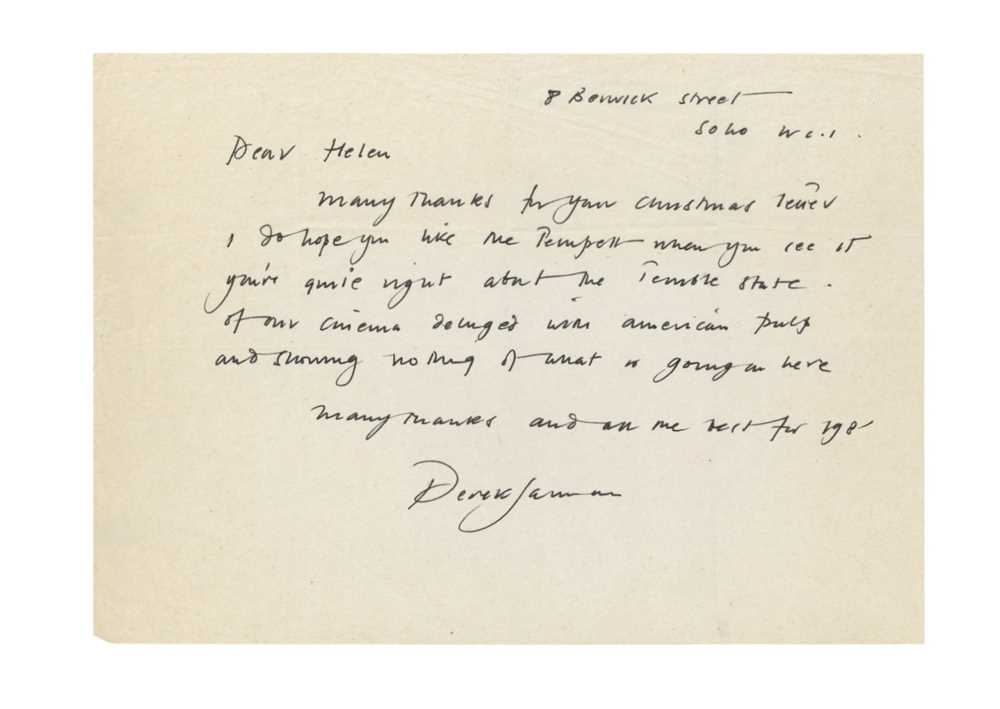 8 Berwick street
Soho W C.1.
Dear Helen
many thanks for your christmas letter
I do hope you like the Tempest when you see it
you're quite right about the terrible state.
of our cinema deluged with american pulp
and showing nothing of what is going on here
many thanks and all the best for 198
Derek Jarman